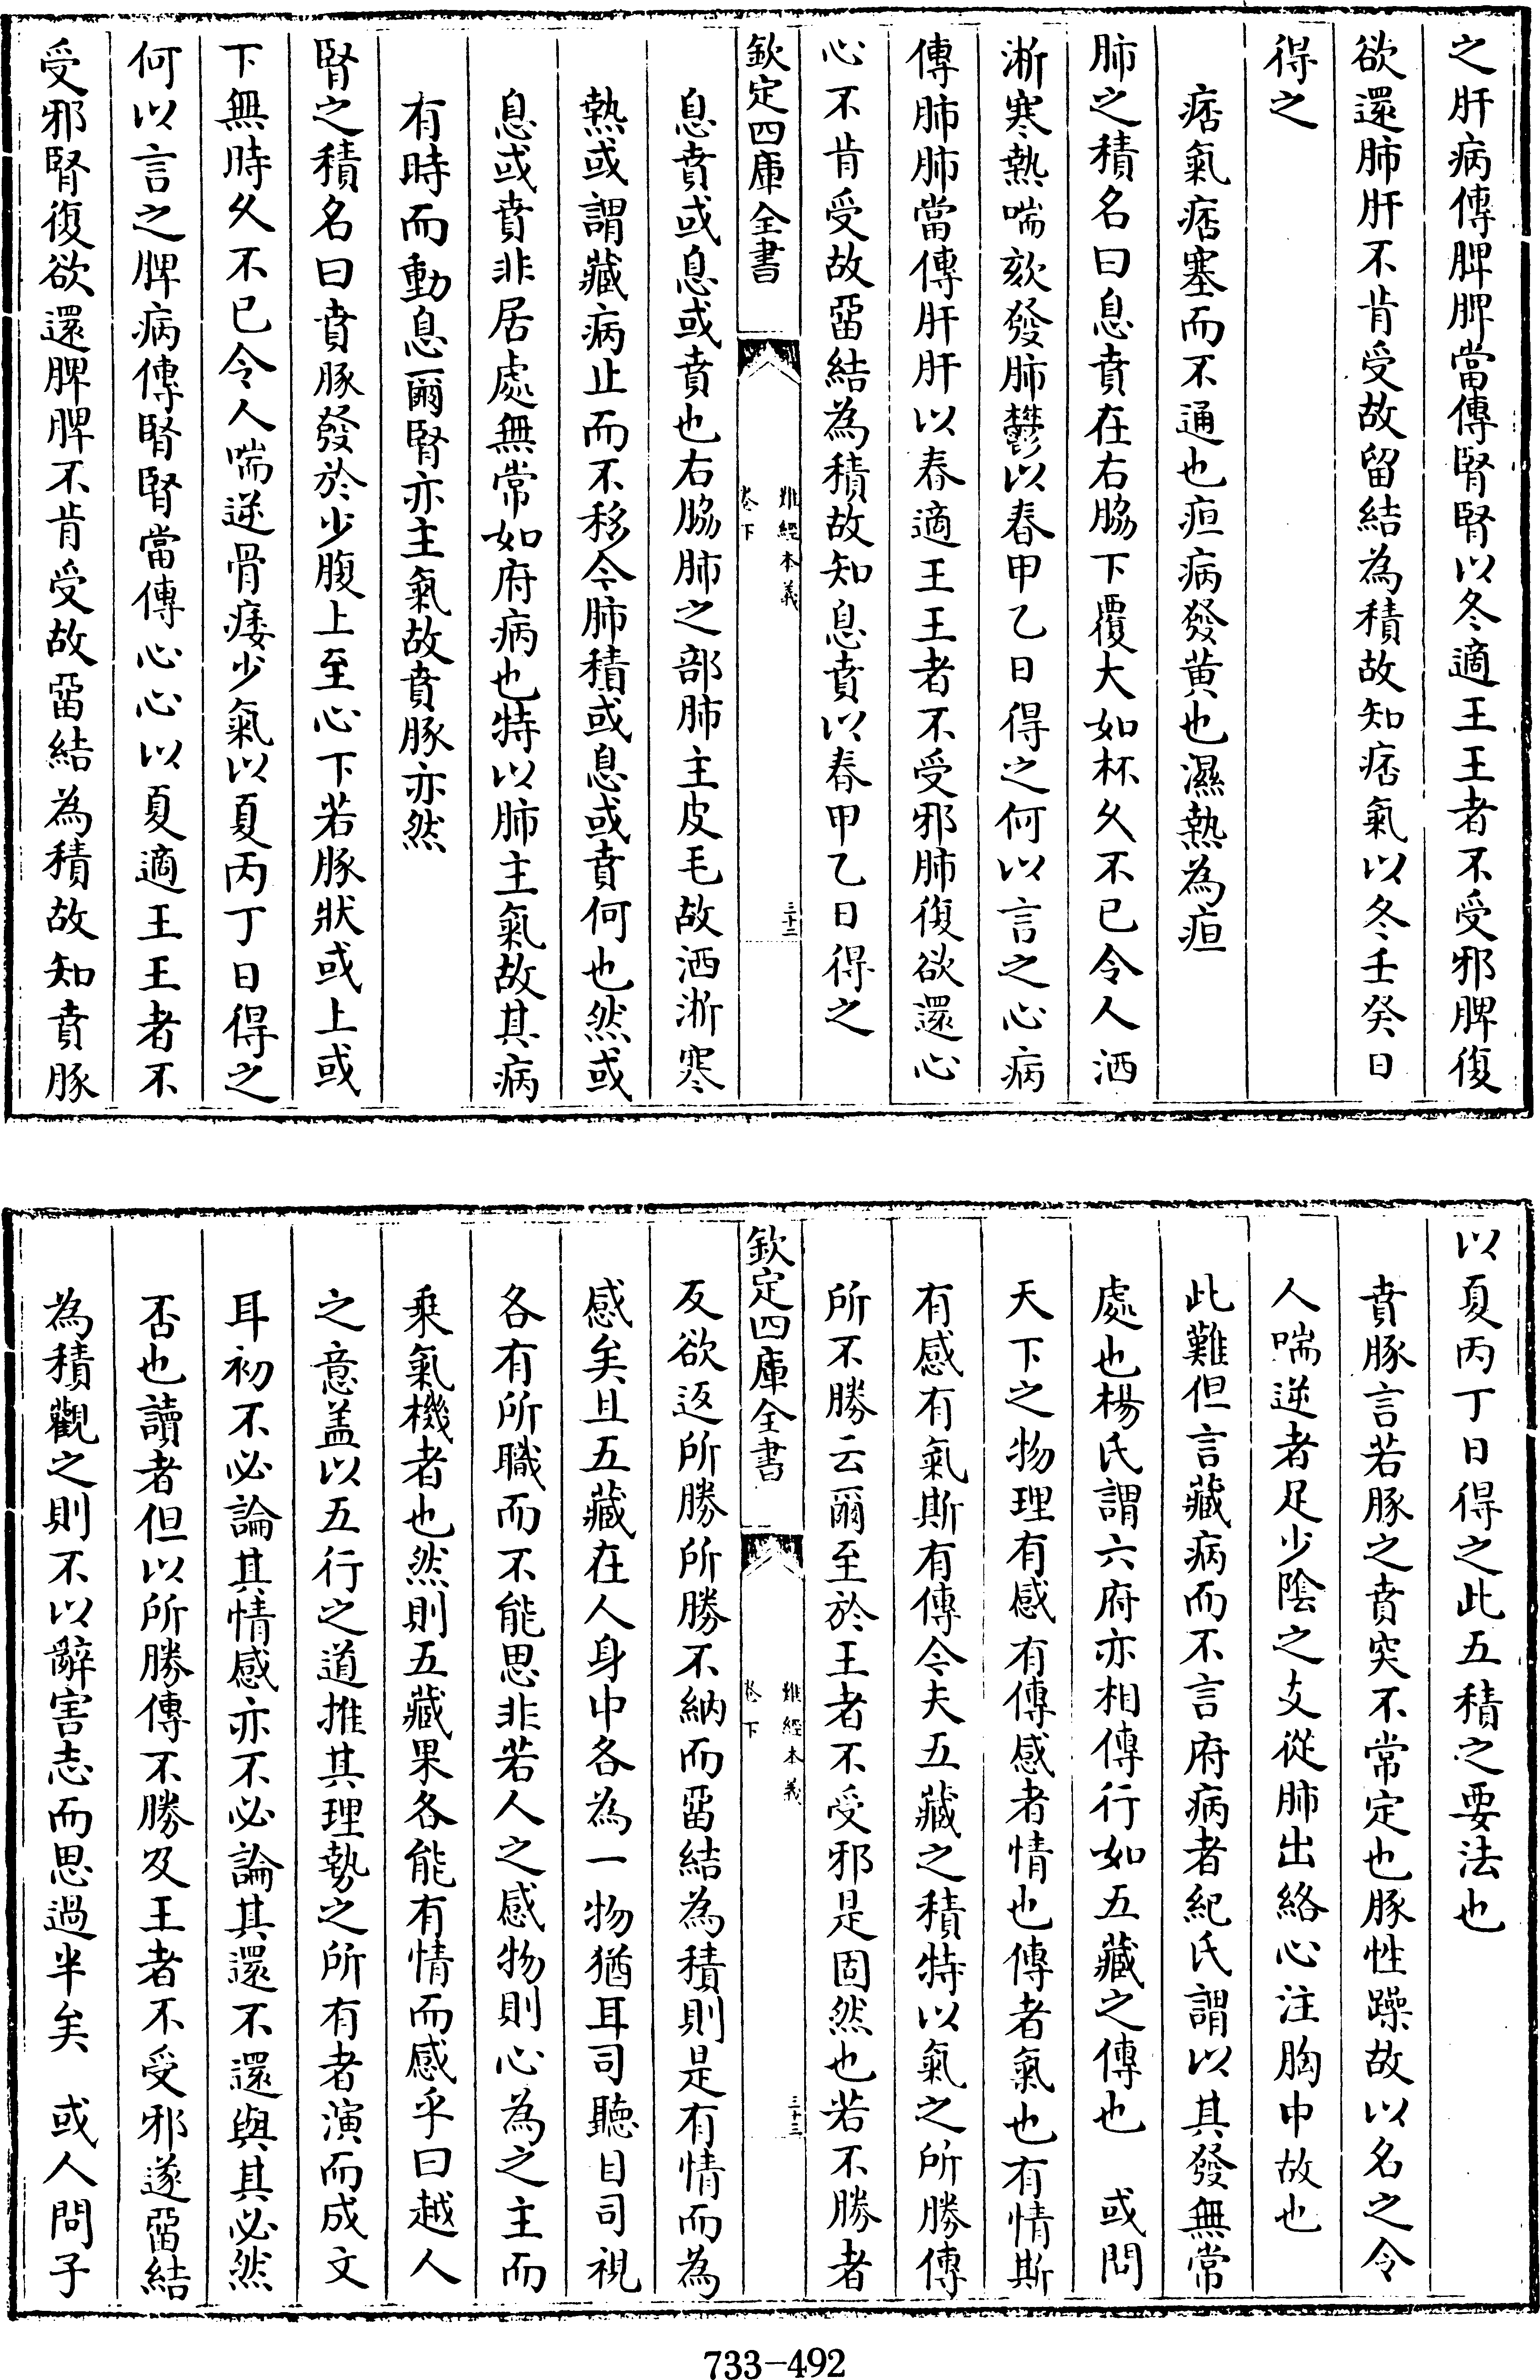 之肝病傳脾脾當傳腎腎以冬適王王者不受邪脾復
欲還肺肝不肯受故留結為積故知痞氣以冬壬癸日
得之
痞氣痞塞而不通也疸病發黄也濕熱為疸
肺之積名曰息賁在右脇下覆大如杯久不已令人洒
淅寒熱喘欬發肺鬱以春甲乙日得之何以言之心病
傳肺肺當傳肝肝以春適王王者不受邪肺復欲還心
心不肯受故畱結為積故知息賁以春甲乙日得之
欽定四庫全書
難經本義
卷下
三十二
息賁或息或賁也右脇肺之部肺主皮毛故洒淅寒
熱或謂藏病止而不移今肺積或息或賁何也然或
息或賁非居處無常如府病也特以肺主氣故其病
有時而動息爾腎亦主氣故賁豚亦然
腎之積名曰賁豚發於少腹上至心下若豚狀或上或
下無時久不已令人喘逆骨痿少氣以夏丙丁日得之
何以言之脾病傳腎腎當傳心心以夏適王王者不
受邪腎復欲還脾脾不肯受故畱結為積故知賁豚
以夏丙丁日得之此五積之要法也
賁豚言若豚之賁突不常定也豚性躁故以名之令
人喘逆者足少陰之支從肺出絡心注胸中故也
此難但言藏病而不言府病者紀氏謂以其發無常
處也楊氏謂六府亦相傳行如五藏之傳也　或問
天下之物理有感有傳感者情也傳者氣也有情斯
有感有氣斯有傳今夫五藏之積特以氣之所勝傳
所不勝云爾至於王者不受邪是固然也若不勝者
欽定四庫全書
難經本義
卷下
三十三
反欲返所勝所勝不納而畱結為積則是有情而為
感矣且五藏在人身中各為一物猶耳司聽目司視
各有所職而不能思非若人之感物則心為之主而
乗氣機者也然則五藏果各能有情而感乎曰越人
之意盖以五行之道推其理勢之所有者演而成文
耳初不必論其情感亦不必論其還不還與其必然
否也讀者但以所勝傳不勝及王者不受邪遂畱結
為積觀之則不以辭害志而思過半矣　或人問子
733-492